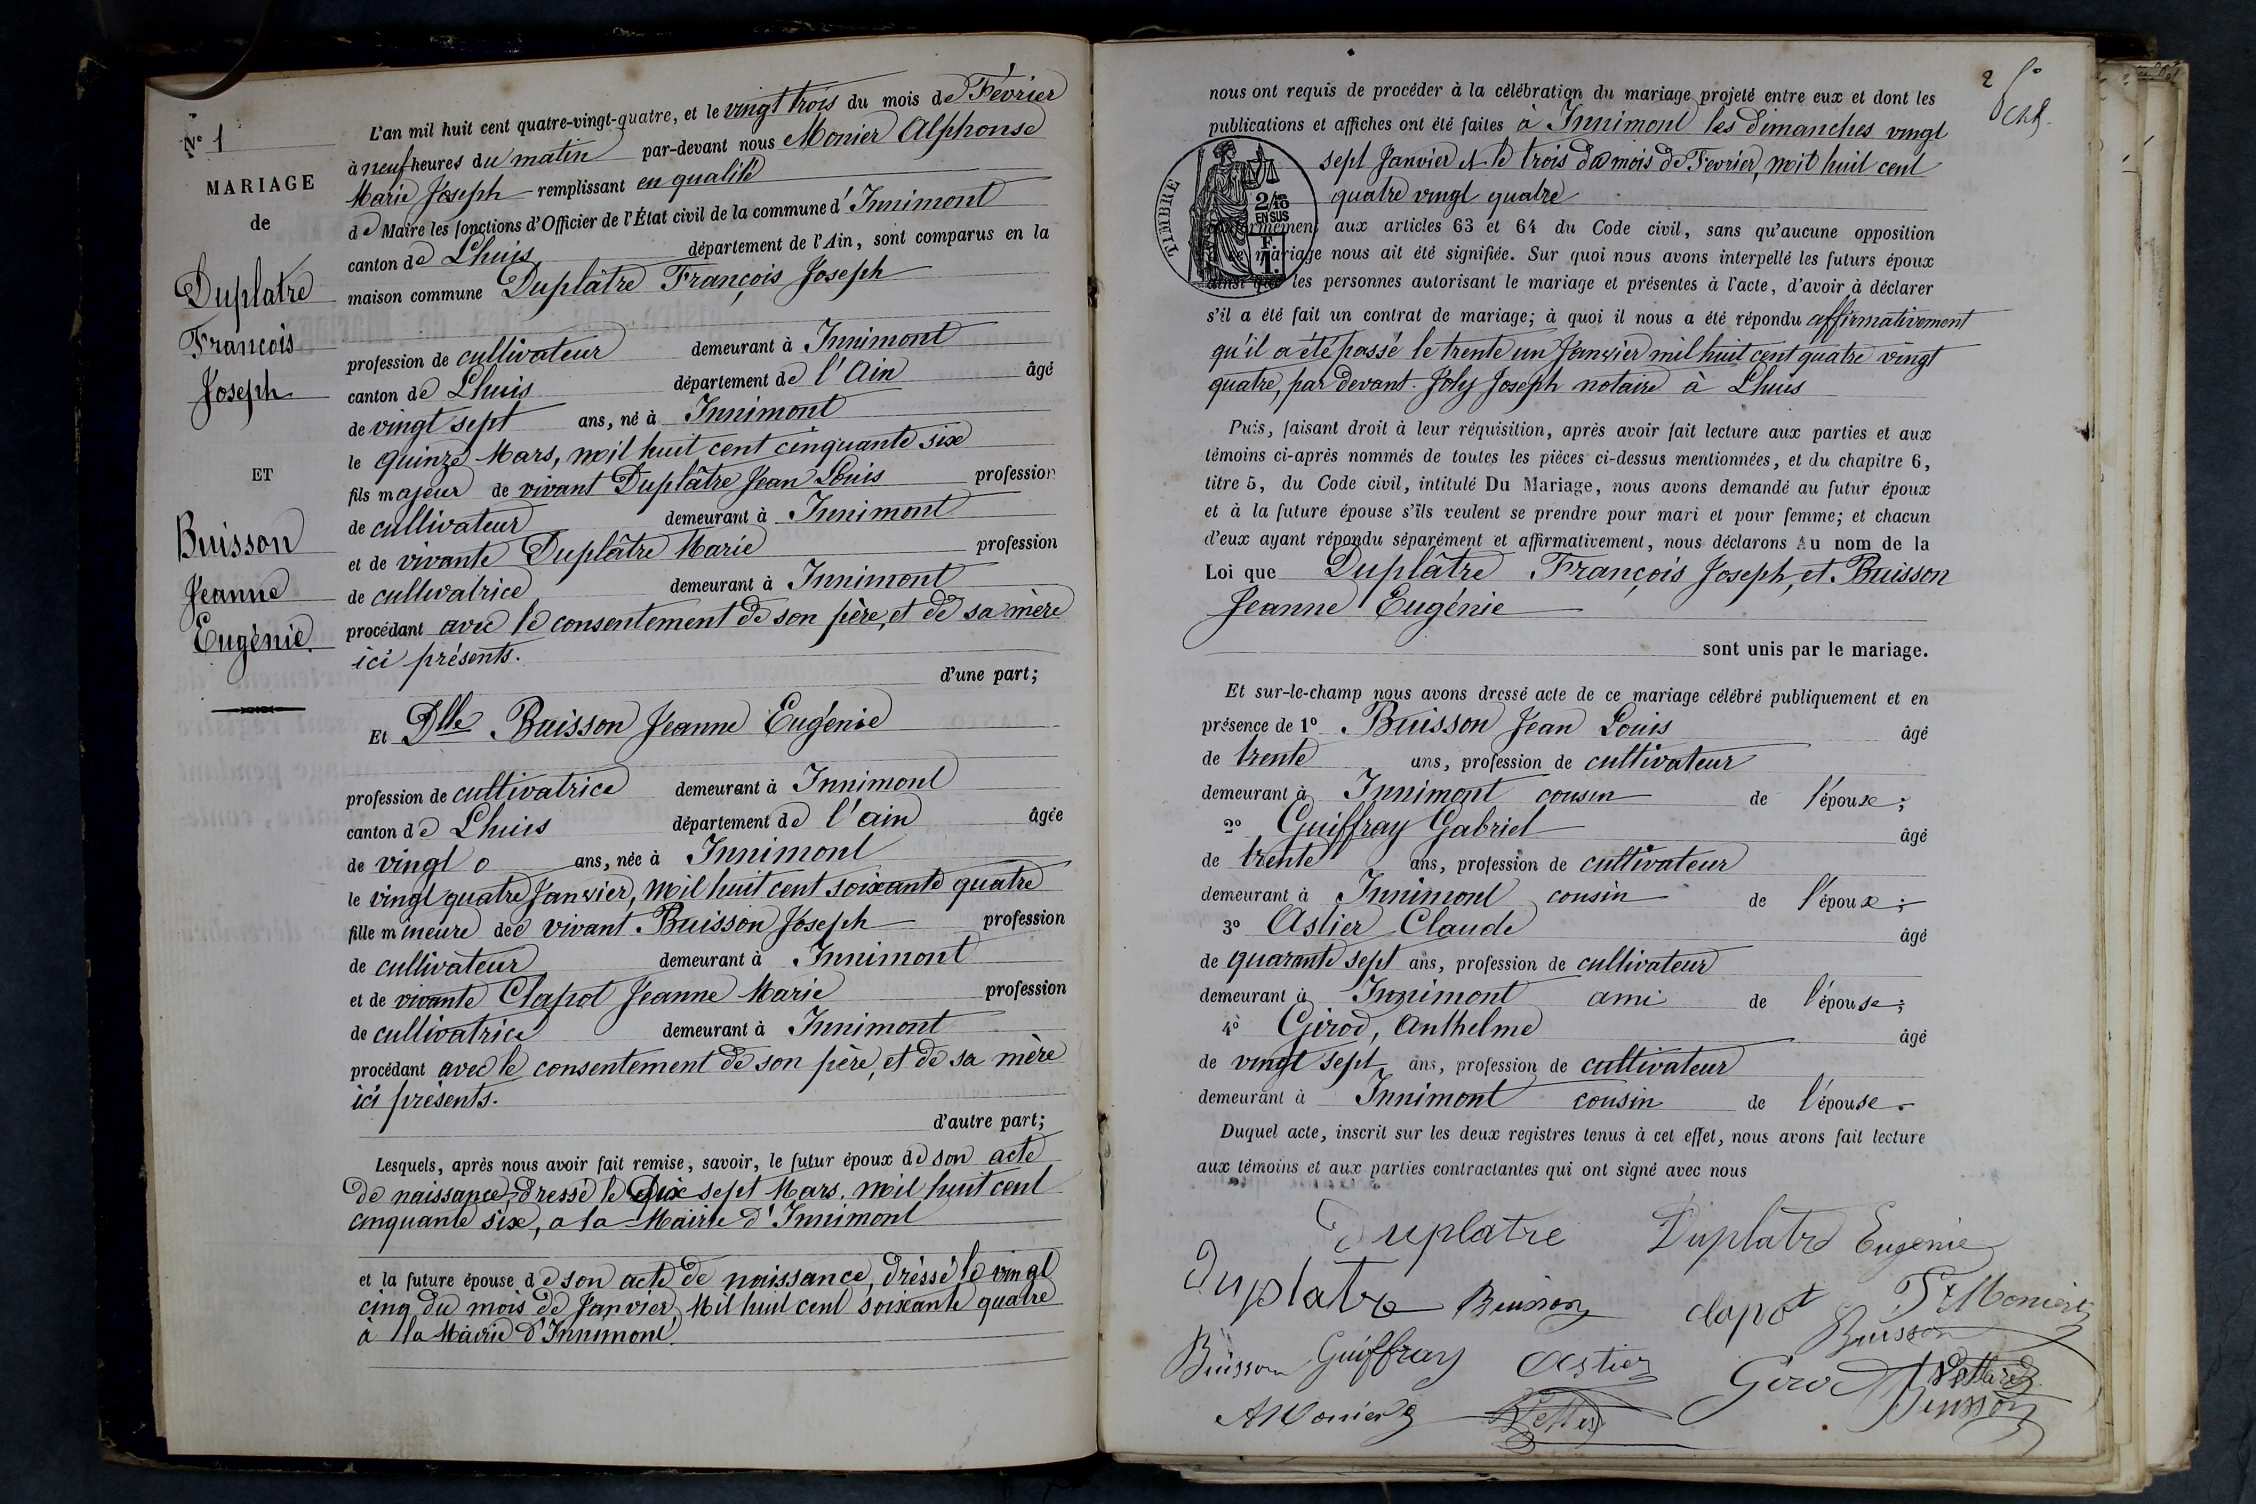 N° 1
MARIAGE
de
Duplatre
François
Joseph
ET
Buisson
Jeanne
Eugénie.
L'an mil huit cent quatre-vingt-quatre, et le vingt trois du mois de Février
à neuf heures du matin par-devant nous Monier Alphonse
Marie Joseph remplissant en qualité
de Maire les fonctions d'Officier de l'État civil de la commune d'Innimont
canton de Lhuis département de l'Ain, sont comparus en la
maison commune Duplâtre François Joseph
profession de cultivateur demeurant à Innimont
canton de Lhuis département de l'Ain âgé
de vingt sept ans, né à Innimont
le quinze Mars, mil huit cent cinquante six
fils majeur de vivant Duplâtre Jean Louis profession
de cultivateur demeurant à Innimont
et de vivante Duplâtre Marie profession
de cultivatrice demeurant à Innimont
procédant avec le consentement de son père, et de sa mère
ici présents.
d'une part;
Et Dlle Buisson Jeanne Eugénie
profession de cultivatrice demeurant à Innimont
canton de Lhuis département de l'ain âgée
de vingt o ans, née à Innimont
le vingt quatre Janvier, mil huit cent soixante quatre
fille mineure de vivant Buisson Joseph profession
de cultivateur demeurant à Innimont
et de vivante Clapot Jeanne Marie profession
de cultivatrice demeurant à Innimont
procédant avec le consentement de son père, et de sa mère
ici présents.
d'autre part;
Lesquels, après nous avoir fait remise, savoir, le futur époux de son acte
de naissance, dressé le Dix sept Mars, mil huit cent
cinquante six, a la Mairie d'Innimont
et la future épouse de son acte de naissance, dréssé le vingt
cinq du mois de Janvier, Mil huit cent soixante quatre
à la Mairie d'Innimont.
2
nous ont requis de procéder à la célébration du mariage projeté entre eux et dont les
publications et affiches ont été faites à Innimont les dimanches vingt
sept Janvier et le trois du mois de Fevrier, mil huit cent
quatre vingt quatre
TIMBRE
2/10 EN SUS
F.
1.
conformément aux articles 63 et 64 du Code civil, sans qu'aucune opposition
à ce mariage nous ait été signifiée. Sur quoi nous avons interpellé les futurs époux
ainsi que les personnes autorisant le mariage et présentes à l'acte, d'avoir à déclarer
s'il a été fait un contrat de mariage; à quoi il nous a été répondu affirmativement
qu'il a été passé le trente un Janvier mil huit cent quatre vingt
quatre, par devant Joly Joseph notaire à Lhuis
Puis, faisant droit à leur réquisition, après avoir fait lecture aux parties et aux
témoins ci-après nommés de toutes les pièces ci-dessus mentionnées, et du chapitre 6,
titre 5, du Code civil, intitulé Du Mariage, nous avons demandé au futur époux
et à la future épouse s'ils veulent se prendre pour mari et pour femme; et chacun
d'eux ayant répondu séparément et affirmativement, nous déclarons Au nom de la
Loi que Duplâtre François Joseph, et Buisson
Jeanne Eugénie
sont unis par le mariage.
Et sur-le-champ nous avons dressé acte de ce mariage célébré publiquement et en
présence de 1° Buisson Jean Louis âgé
de trente ans, profession de cultivateur
demeurant à Innimont cousin de l'épouse;
2° Guiffray Gabriel âgé
de trente ans, profession de cultivateur
demeurant à Innimont cousin de l'époux;
3° Astier Claude âgé
de quarante sept ans, profession de cultivateur
demeurant à Innimont ami de l'épouse;
4° Girod, Anthelme âgé
de vingt sept ans, profession de cultivateur
demeurant à Innimont cousin de l'épouse.
Duquel acte, inscrit sur les deux registres tenus à cet effet, nous avons fait lecture
aux témoins et aux parties contractantes qui ont signé avec nous
Duplatre Duplâtre Eugenie
Duplatre Buisson clapot Monier
Buisson
Buisson Guiffray Astier Girod
Buisson
AMonier